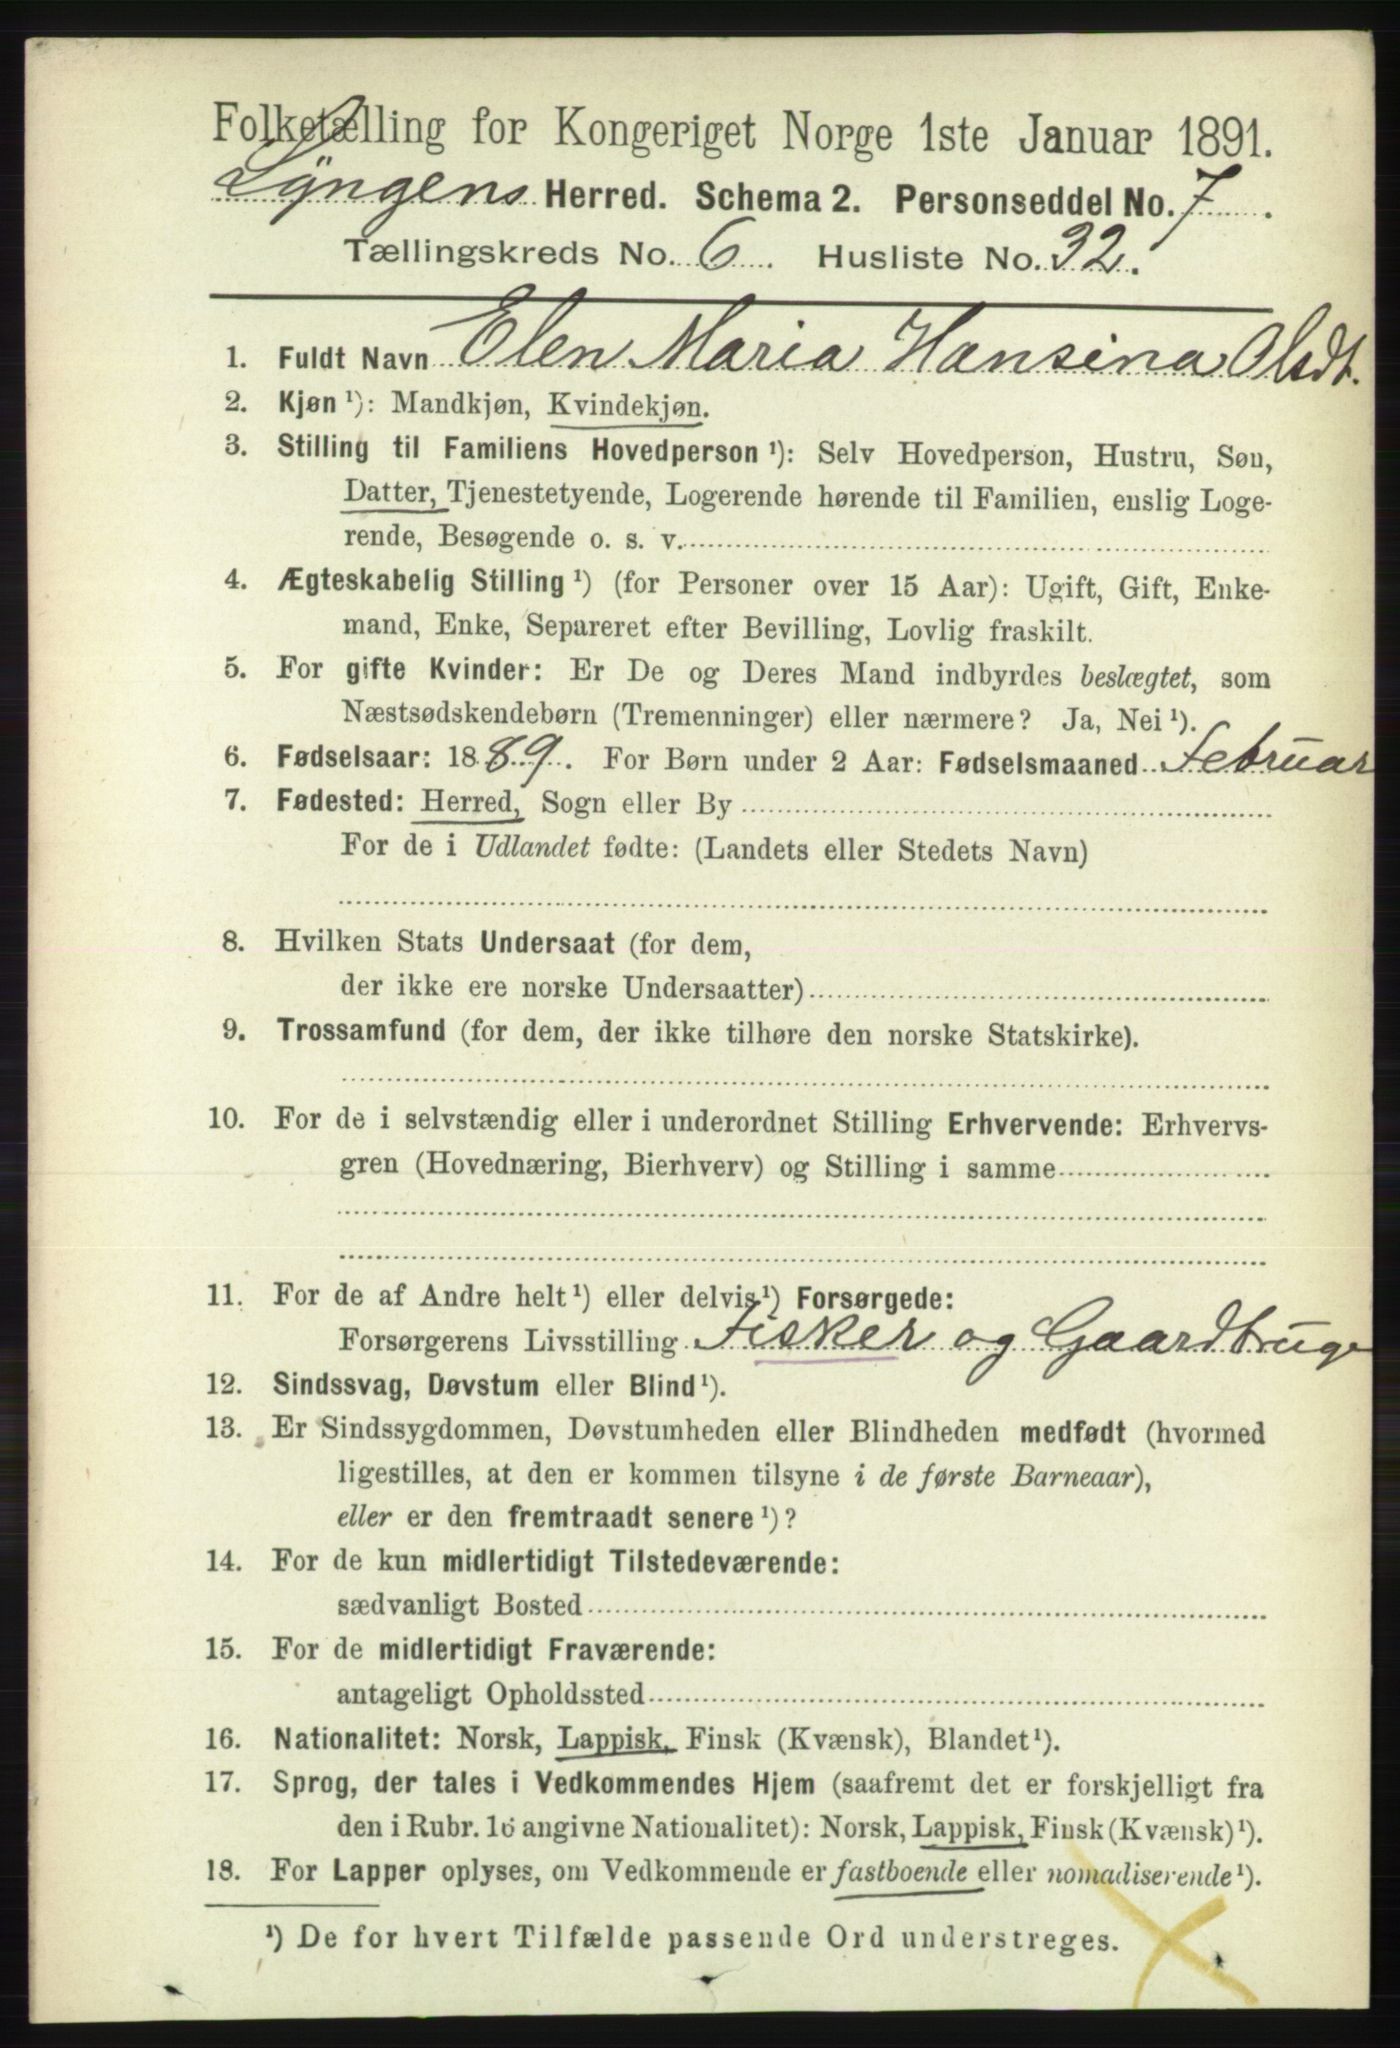 Folketælling for Kongeriget Norge 1ste Januar 1891.
Lyngens Herred. Schema 2. Personseddel No. 7.
Tællingskreds No. 6. Husliste No. 32.
1. Fuldt Navn Elen Maria Hansina Olsdt.
2. Kjøn ¹): Mandkjøn, Kvindekjøn.
3. Stilling til Familiens Hovedperson ¹): Selv Hovedperson, Hustru, Søn,
Datter, Tjenestetyende, Logerende hørende til Familien, enslig Loge-
rende, Besøgende o. s. v.
4. Ægteskabelig Stilling ¹) (for Personer over 15 Aar): Ugift, Gift, Enke-
mand, Enke, Separeret efter Bevilling, Lovlig fraskilt.
5. For gifte Kvinder: Er De og Deres Mand indbyrdes beslægtet, som
Næstsødskendebørn (Tremenninger) eller nærmere? Ja, Nei ¹).
6. Fødselsaar: 1889. For Børn under 2 Aar: Fødselsmaaned Februar
7. Fødested: Herred, Sogn eller By
For de i Udlandet fødte: (Landets eller Stedets Navn)
8. Hvilken Stats Undersaat (for dem,
der ikke ere norske Undersaatter)
9. Trossamfund (for dem, der ikke tilhøre den norske Statskirke).
10. For de i selvstændig eller i underordnet Stilling Erhvervende: Erhvervs-
gren (Hovednæring, Bierhverv) og Stilling i samme
11. For de af Andre helt ¹) eller delvis ¹) Forsørgede:
Forsørgerens Livsstilling Fisker og Gaardbruge
12. Sindssvag, Døvstum eller Blind ¹).
13. Er Sindssygdommen, Døvstumheden eller Blindheden medfødt (hvormed
ligestilles, at den er kommen tilsyne i de første Barneaar),
eller er den fremtraadt senere ¹)?
14. For de kun midlertidigt Tilstedeværende:
sædvanligt Bosted
15. For de midlertidigt Fraværende:
antageligt Opholdssted
16. Nationalitet: Norsk, Lappisk, Finsk (Kvænsk), Blandet ¹).
17. Sprog, der tales i Vedkommendes Hjem (saafremt det er forskjelligt fra
den i Rubr. 16 angivne Nationalitet): Norsk, Lappisk, Finsk (Kvænsk) ¹).
18. For Lapper oplyses, om Vedkommende er fastboende eller nomadiserende ¹).
¹) De for hvert Tilfælde passende Ord understreges.